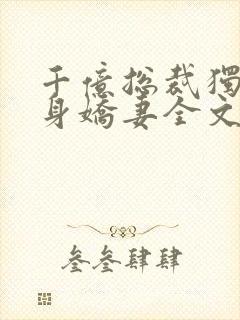 千億總裁獨
身嬌妻全文
叄叄肆肆